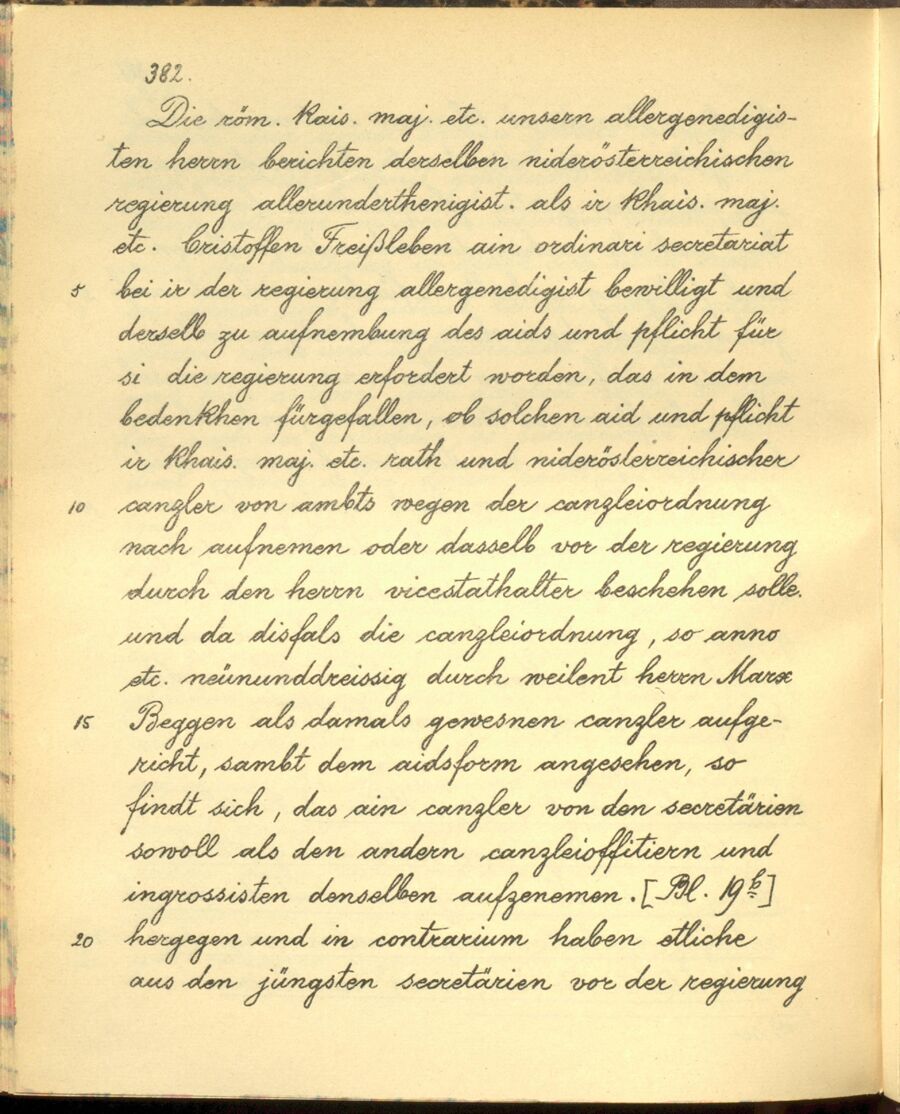 382.
Die röm. kais. maj. etc. unsern allergenedigis-
ten herrn berichten derselben niderösterreichischen
regierung allerunderthenigist. als ir khais. maj.
etc. Cristoffen Freißleben ain ordinari secretariat
5 bei ir der regierung allergenedigist bewilligt und
derselb zu aufnembung des aids und pflicht für
si die regierung erfordert worden, das in dem
bedenkhen fürgefallen, ob solchen aid und pflicht
ir khais. maj. etc. rath und niderösterreichischer
10 canzler von ambts wegen der canzleiordnung
nach aufnemen oder dasselb vor der regierung
durch den herrn vicestathalter beschehen solle.
und da disfals die canzleiordnung, so anno
etc. neünunddreissig durch weilent herrn Marx
15 Beggen als damals gewesnen canzler aufge-
richt, sambt dem aidsform angesehen, so
findt sich, das ain canzler von den secretärien
sowoll als den andern canzleioffitiern und
ingrossisten denselben aufzenemen. [Bl. 19b]
20 hergegen und in contrarium haben etliche
aus den jüngsten secretärien vor der regierung